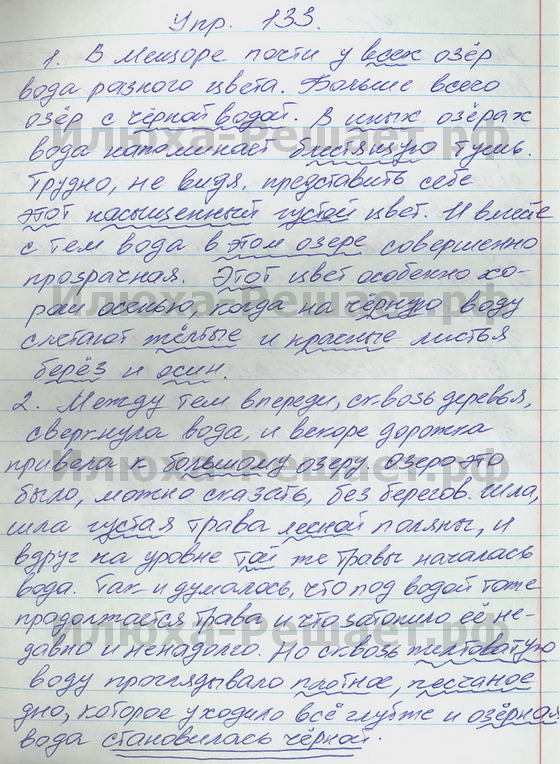 Упр. 133.
1. В Мещоре почти у всех озёр
вода разного цвета. Больше всего
озёр с чёрной водой. В иных озёрах
Илюха-Решает.рф
вода напоминает блестящую тушь.
Трудно, не видя, представить себе
этот насыщенный густой цвет. И вместе
с тем вода в этом озере совершенно
прозрачная. Этот цвет особенно хо-
Илюха-Решает.рф
рош осенью, когда на чёрную воду
слетают жёлтые и красные листья
берёз и осин.
2. Между тем впереди, сквозь деревья,
сверкнула вода, и вскоре дорожка
привела к большому озеру. Озеро это
Илюха-Решает.рф
было, можно сказать, без берегов. Шла,
шла густая трава лесной поляны, и
вдруг на уровне той же травы началась
вода. Так и думалось, что под водой тоже
продолжается трава и что затопило её не-
Илюха-Решает.рф
давно и ненадолго. Но сквозь желтоватую
воду проглядывало плотное, песчаное
дно, которое уходило всё глубже и озёрная
вода становилась чёрной.